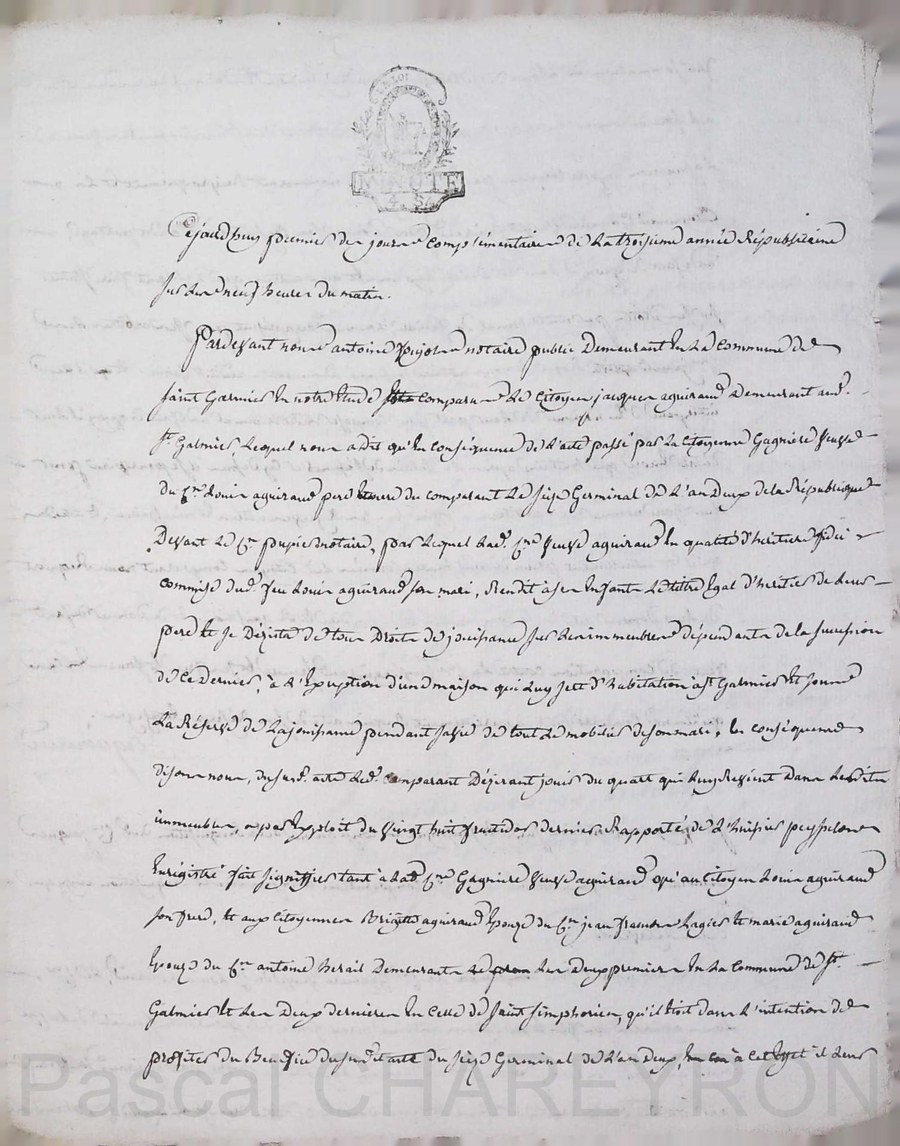 LA LOI
MINUTE
4. S.
Cejourd'huy premier des jours complémentaires de la troisieme année Républicaine
sur les neuf heures du matin.
Pardevant nous antoine pujol notaire public Demeurant En la Commune de
saint Galmier En notre Etude comparu Le Citoyen jacques aguiraud Demeurant aud.
St Galmier, Lequel nous a dit qu'En conséquence de L'acte passé par la Citoyenne Gagniere Veuve
du Cen Louis aguiraud pere du comparant Le seize Germinal de L'an Deux de la République
Devant Le Cen notaire, par Lequel Lad. Cne Veuve aguiraud En qualité d'héritiere fidei
commise dud. feu Louis aguiraud son mari, Rendit à ses Enfants Le titre Egal d'héritier de Leur
pere Et se Désista de tous Droits de jouissance sur Les immeubles dépendants de la succession
de ce Dernier, à L'Exception d'une maison qui Luy sert d'habitation à St Galmier Et sous
La Réserve de La jouissance pendant sa vie de tout Le mobilier de son mari, En conséquence
disons nous, dusud. acte Led. Comparant Désirant jouir du quart qui Luy Revient Dans Lesdits
immeubles, a par Exploit du Vingt huit fructidor dernier Rapporté de L'huissier peysselon
Enregistré fait signiffier tant à Lad. Cne Gagniere Veuve aguiraud qu'au Citoyen Louis aguiraud
son frere, Et aux Citoyennes Brigitte aguiraud Epouze du Cen jean francois Lagier Et marie aguiraud
Epouze du Cen antoine Berail Demeurants Les Deux premiers En La Commune de St.
Galmier Et Les Deux dernieres En Celle de Saint simphorien, qu'il Etoit Dans L'intention de
profiter du Benefice dusudit acte du seize Germinal de L'an Deux, à Cet Effet il Leur
Pascal CHAREYRON